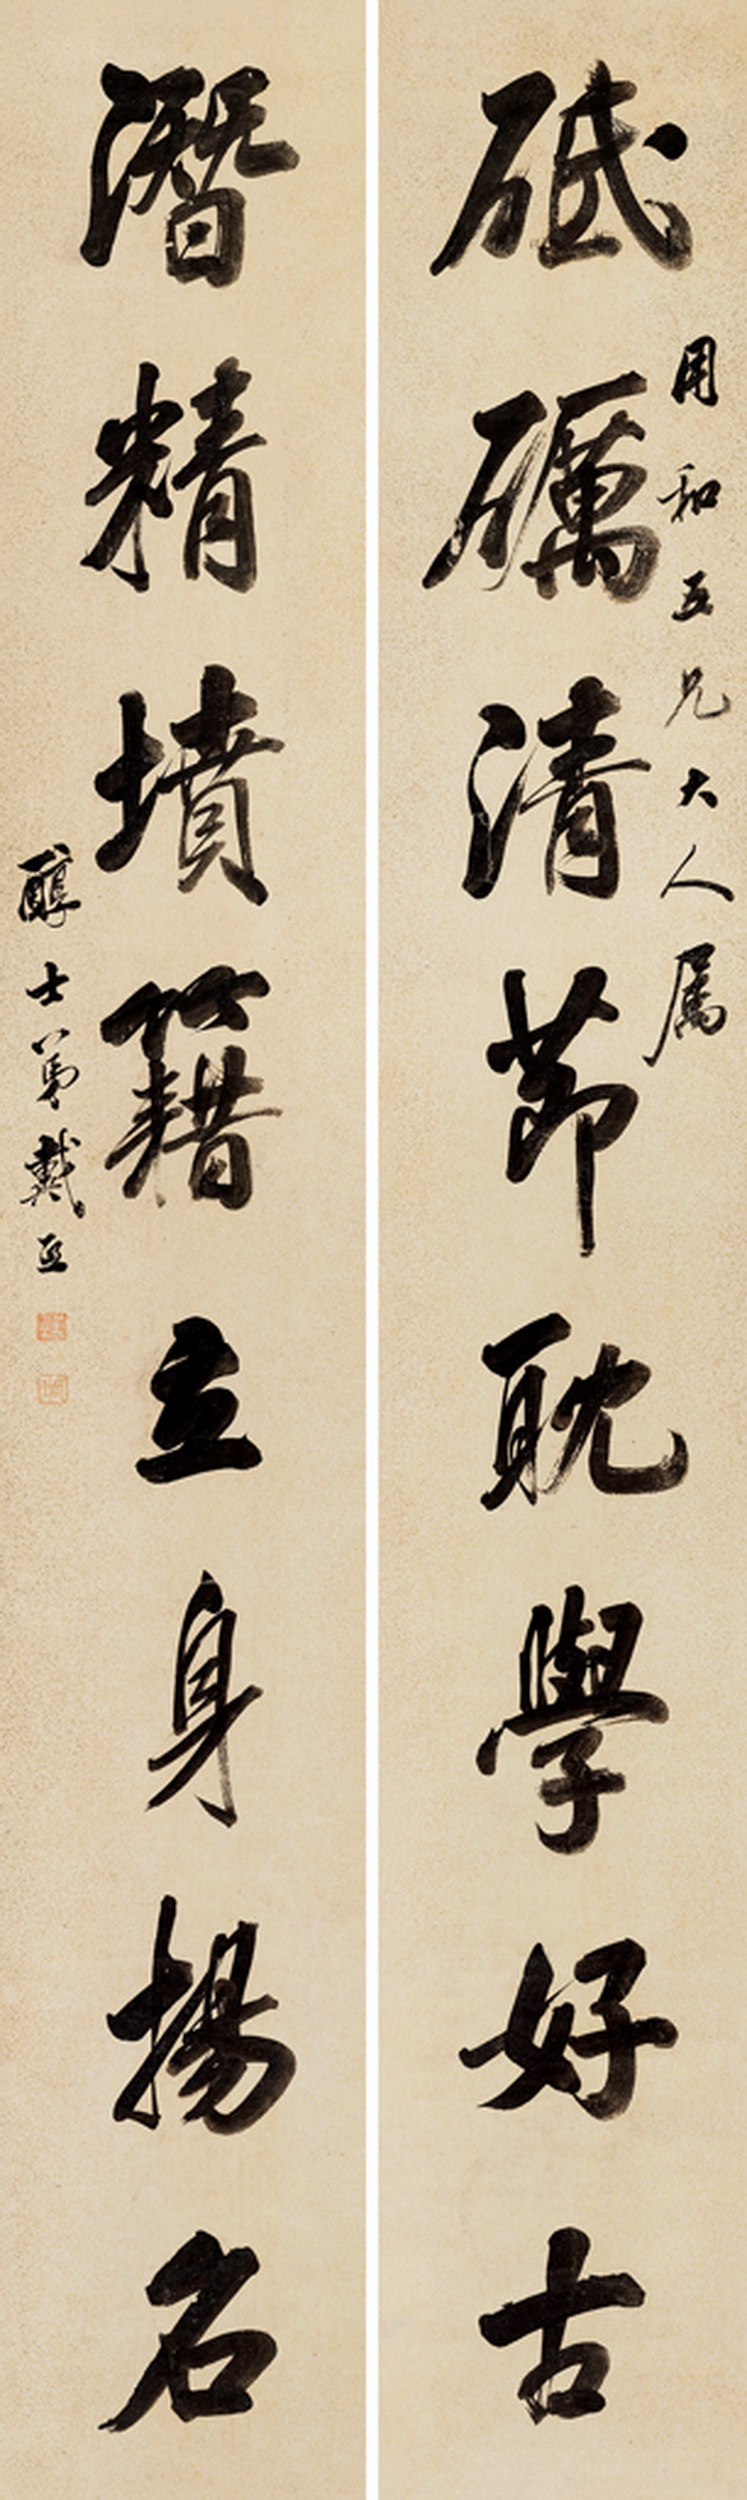 砥礪清節耽學好古
用和五兄大人属
潛精墳籍立身揚名
醇士弟戴熙